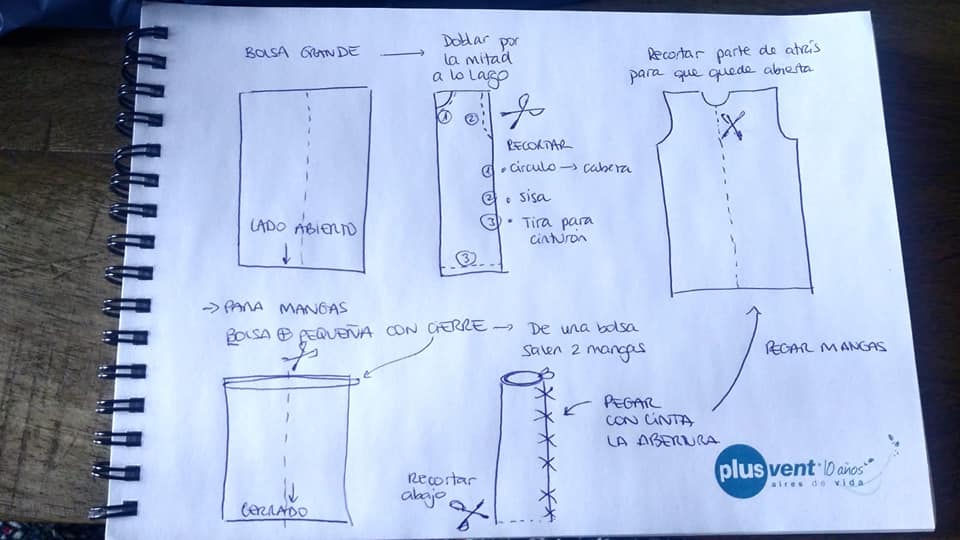 BOLSA GRANDE → Doblar por
la mitad
a lo lago
LADO ABIERTO
① ②
RECORTAR
① • circulo → cabeza
② • sisa
③ • Tira para
cinturón
③
Recortar parte de atrás
para que quede abierta
→ PARA MANGAS
BOLSA ⊕ PEQUEÑA CON CIERRE → De una bolsa
salen 2 mangas
CERRADO
Recortar
abajo
PEGAR
CON CINTA
LA ABERTURA
PEGAR MANGAS
plusvent 10 años
aires de vida